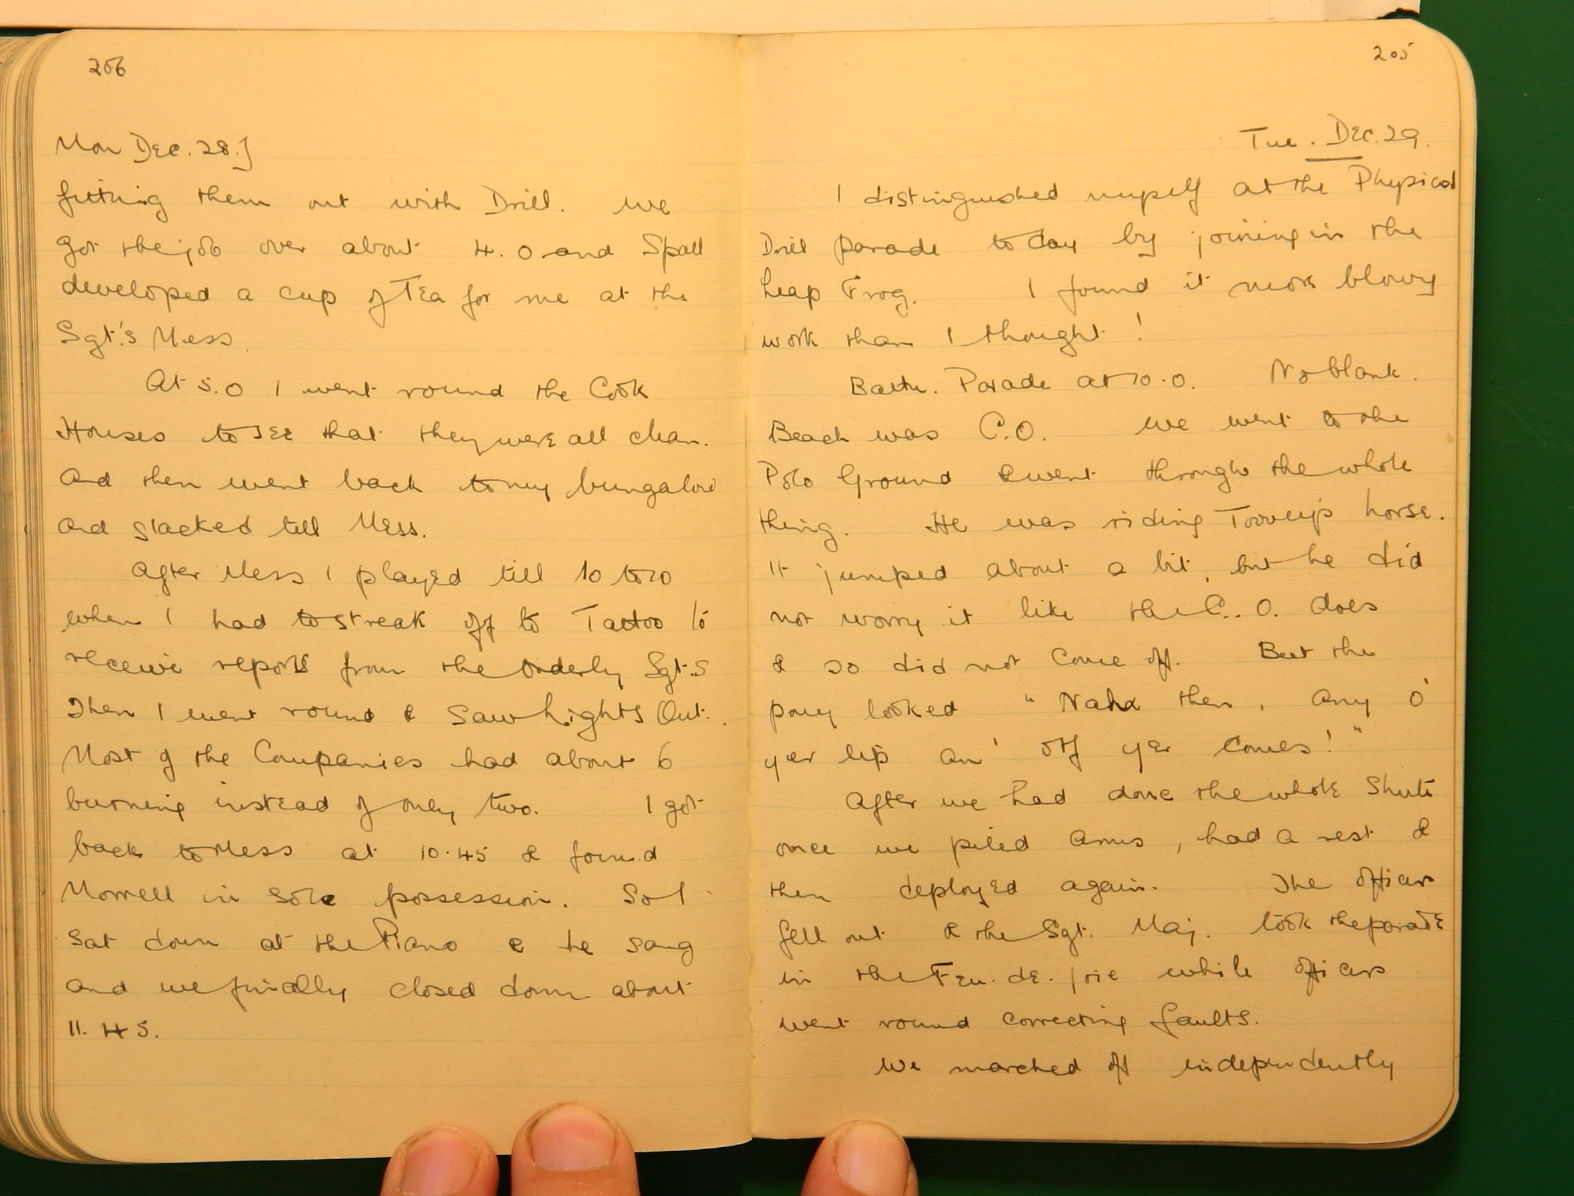 206
Mon Dec. 28.]
fitting them out with Drill. We
got the job over about 4.0 and Spatt
developed a cup of Tea for me at the
Sgt.'s Mess.
At 5.0 I went round the Cook
Houses to see that they were all clean.
And then went back to my bungalow
and slacked till Mess.
After Mess I played till 10 to 10
when I had to streak off to Tattoo to
receive reports from the Orderly Sgt.s
Then I went round & saw Lights Out.
Most of the Companies had about 6
burning instead of only two. I got
back to Mess at 10.45 & found
Morrell in sole possession. So I
sat down at the Piano & he sang
and we finally closed down about
11.45.
205
Tue. Dec. 29.
I distinguished myself at the Physical
Drill parade today by joining in the
Leap Frog. I found it more blowy
work than I thought!
Battn. Parade at 10.0. No blank.
Beach was C.O. We went to the
Polo Ground & went through the whole
thing. He was riding Toovey's horse.
It jumped about a bit, but he did
not worry it like the C.O. does
& so did not come off. But the
pony looked "Nah then, any o'
yer lip an' off yer comes!"
After we had done the whole Shute
once we piled arms, had a rest &
then deployed again. The officers
fell out & the Sgt. Maj. took the parade
in the Feu. de. joie while officers
went round correcting faults.
We marched off independently